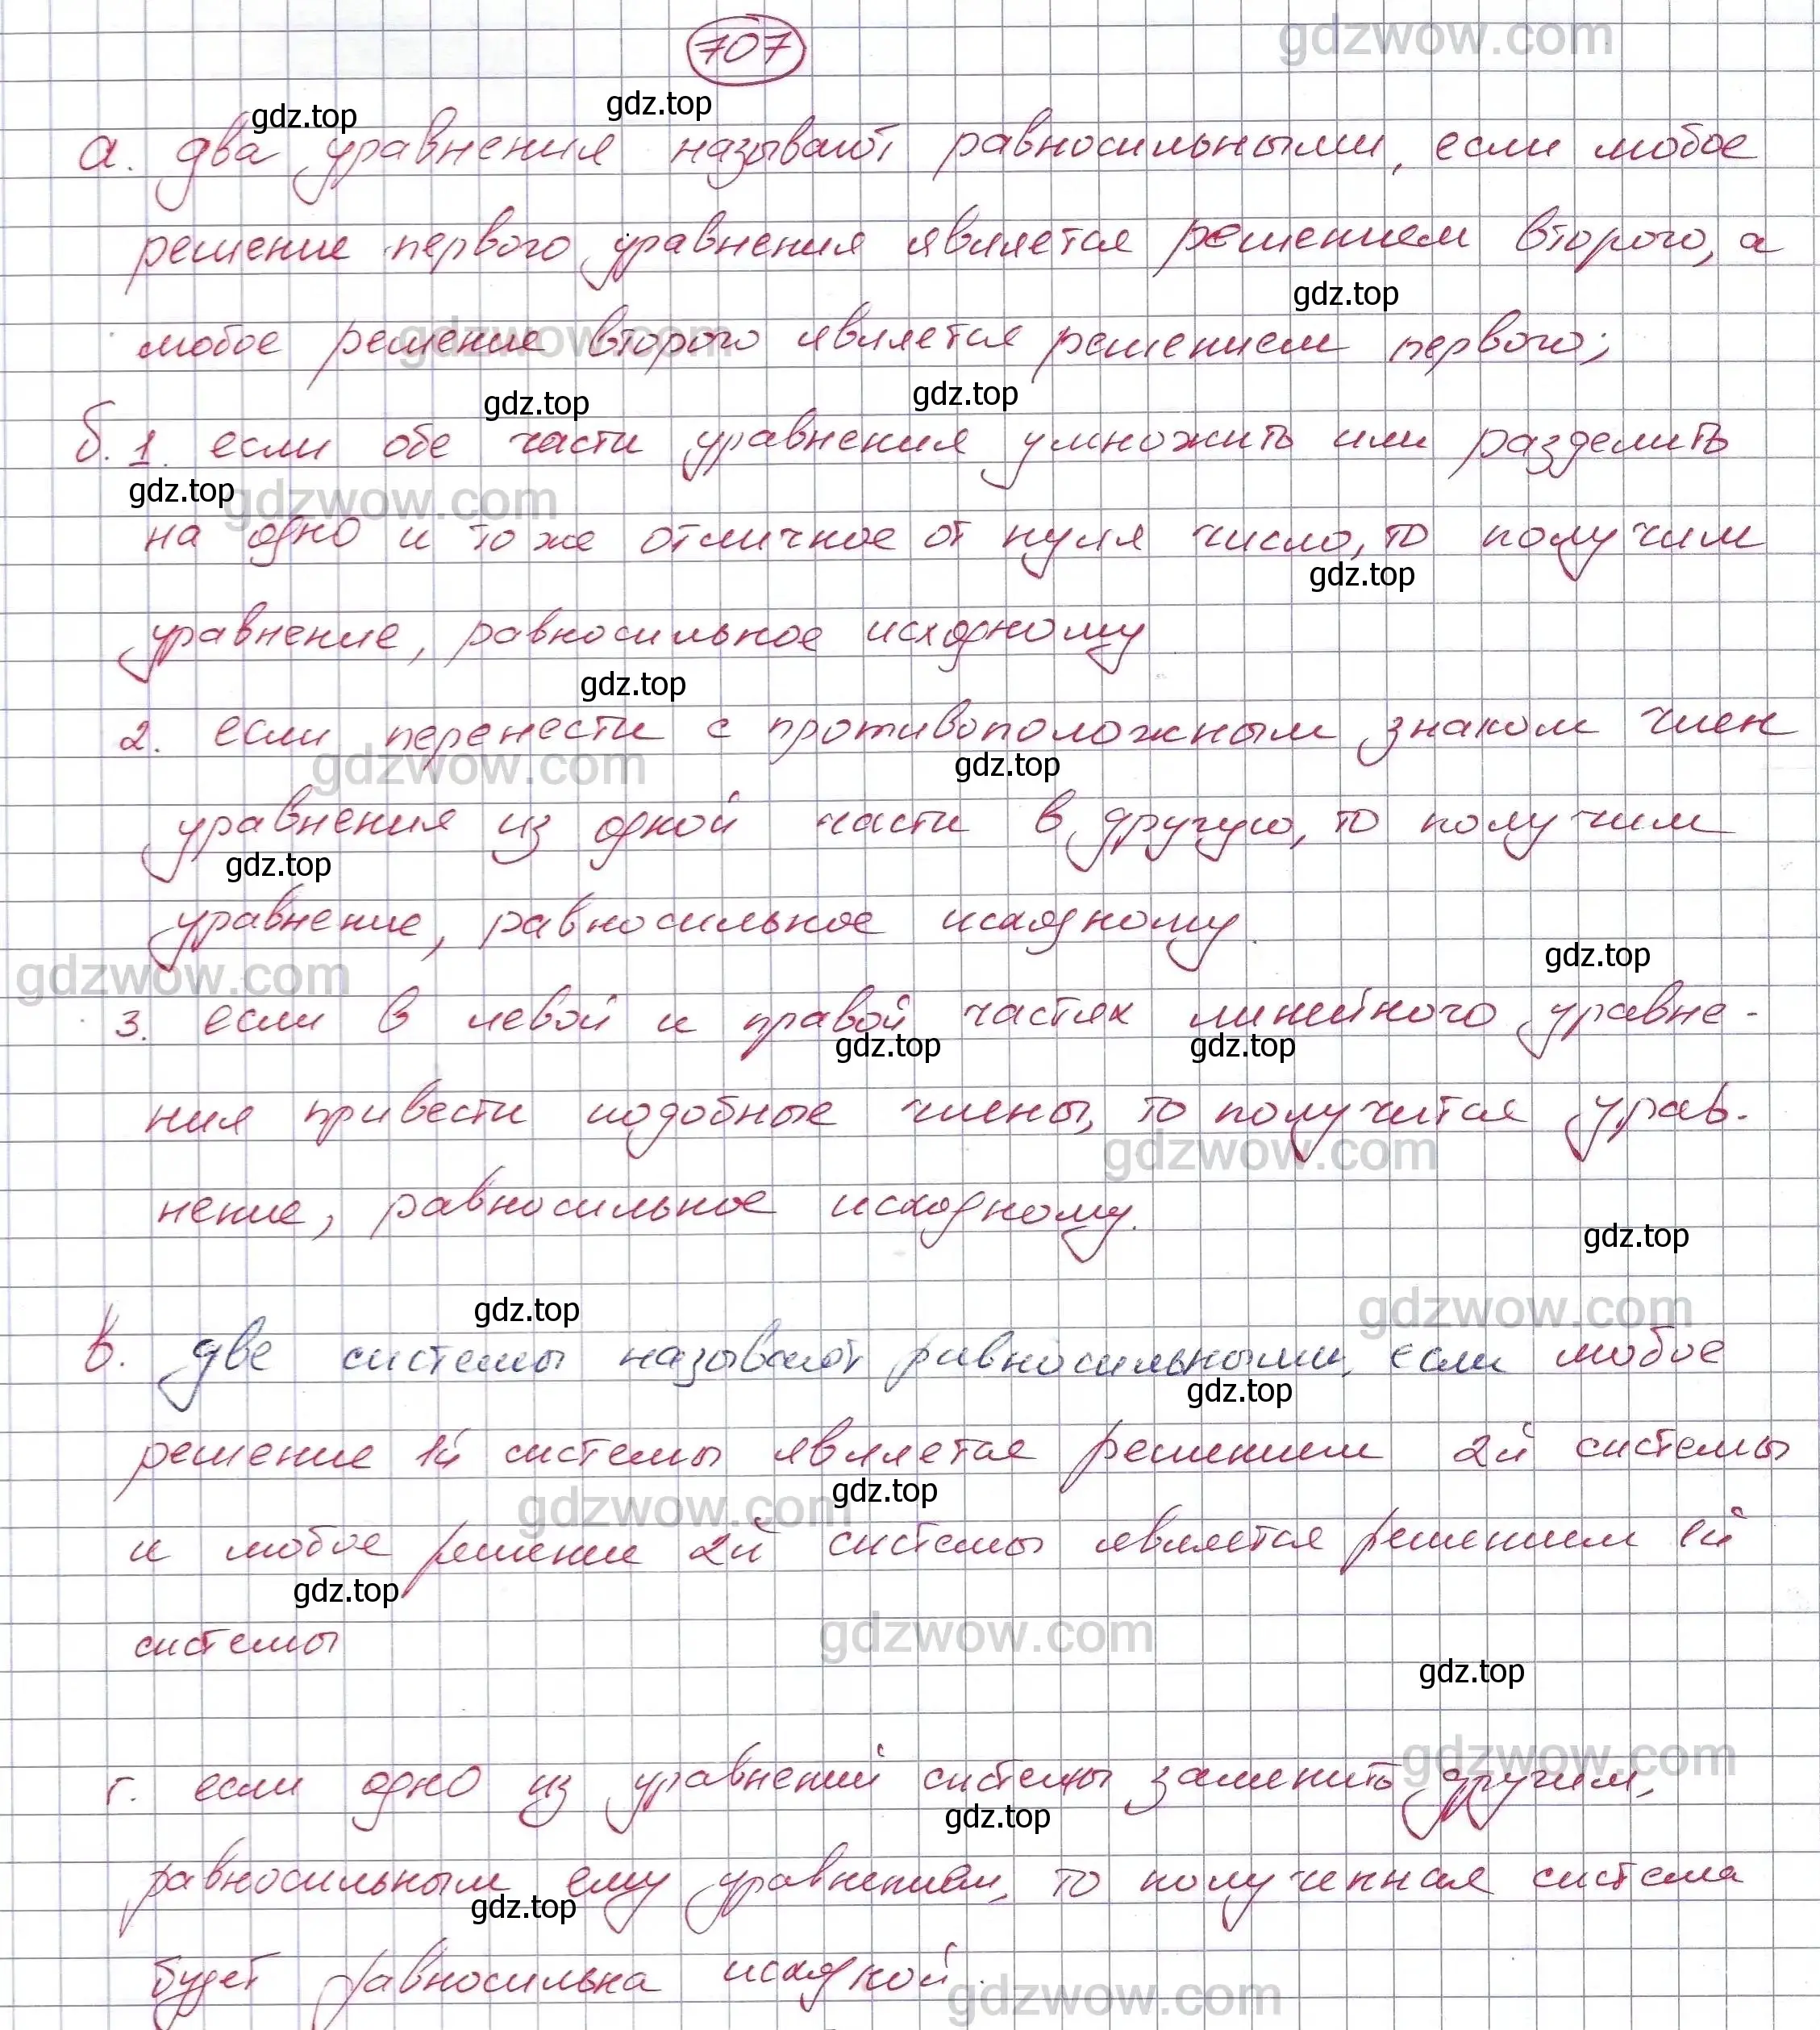 707
gdzwow.com
gdz.top gdz.top
а. два уравнения называют равносильными, если любое
решение первого уравнения является решением второго, а
gdz.top
любое решение второго является решением первого;
gdzwow.com
gdz.top gdz.top
б. 1. если обе части уравнения умножить или разделить
gdz.top gdzwow.com
на одно и то же отличное от нуля число, то получим
gdz.top
уравнение, равносильное исходному
gdz.top
2. если перенести с противоположным знаком член
gdzwow.com gdz.top
уравнения из одной части в другую, то получим
gdz.top
уравнение, равносильное исходному.
gdzwow.com gdz.top
3. если в левой и правой частях линейного уравне-
gdz.top gdz.top
ния привести подобные члены, то получится урав-
gdzwow.com
нение, равносильное исходному.
gdz.top
gdz.top gdzwow.com
в. две системы называют равносильными, если любое
gdz.top
решение 1й системы является решением 2й системы
gdzwow.com gdz.top
и любое решение 2й системы является решением 1й
gdz.top
системы
gdzwow.com
gdz.top
г. если одно из уравнений системы заменить другим,
gdzwow.com
gdz.top
равносильным ему уравнением, то полученная система
gdz.top
будет равносильна исходной.
gdzwow.com